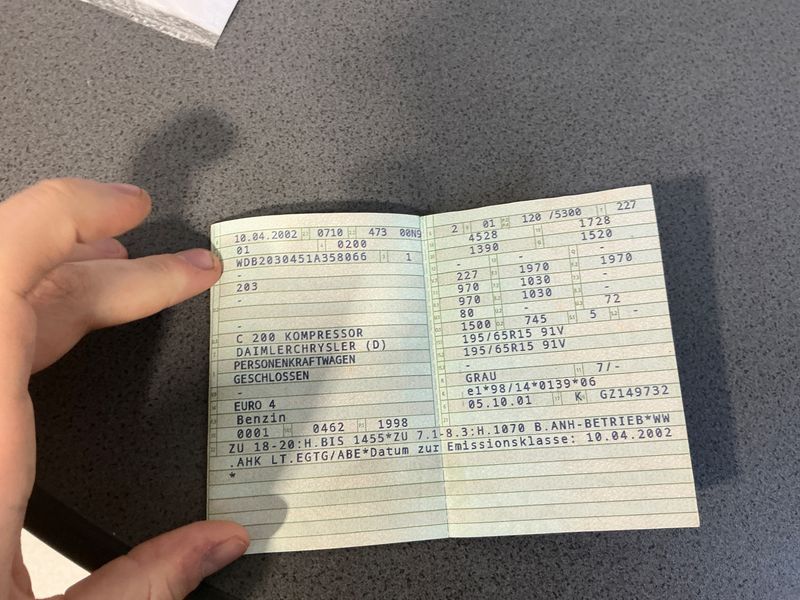 10.04.2002 0710 473 00N9
01 0200
WDB2030451A358066 1
-
203
-
-
C 200 KOMPRESSOR
DAIMLERCHRYSLER (D)
PERSONENKRAFTWAGEN
GESCHLOSSEN
-
EURO 4
Benzin
0001 0462 1998
2 01 120 /5300 227
4528 1728
1390 1520
- - -
227 1970 1970
970 1030 -
970 1030 -
80 - 72
1500 745 5 -
195/65R15 91V
195/65R15 91V
-
GRAU 7/-
e1*98/14*0139*06
05.10.01 K GZ149732
ZU 18-20:H.BIS 1455*ZU 7.1-8.3:H.1070 B.ANH-BETRIEB*WW
.AHK LT.EGTG/ABE*Datum zur Emissionsklasse: 10.04.2002
*